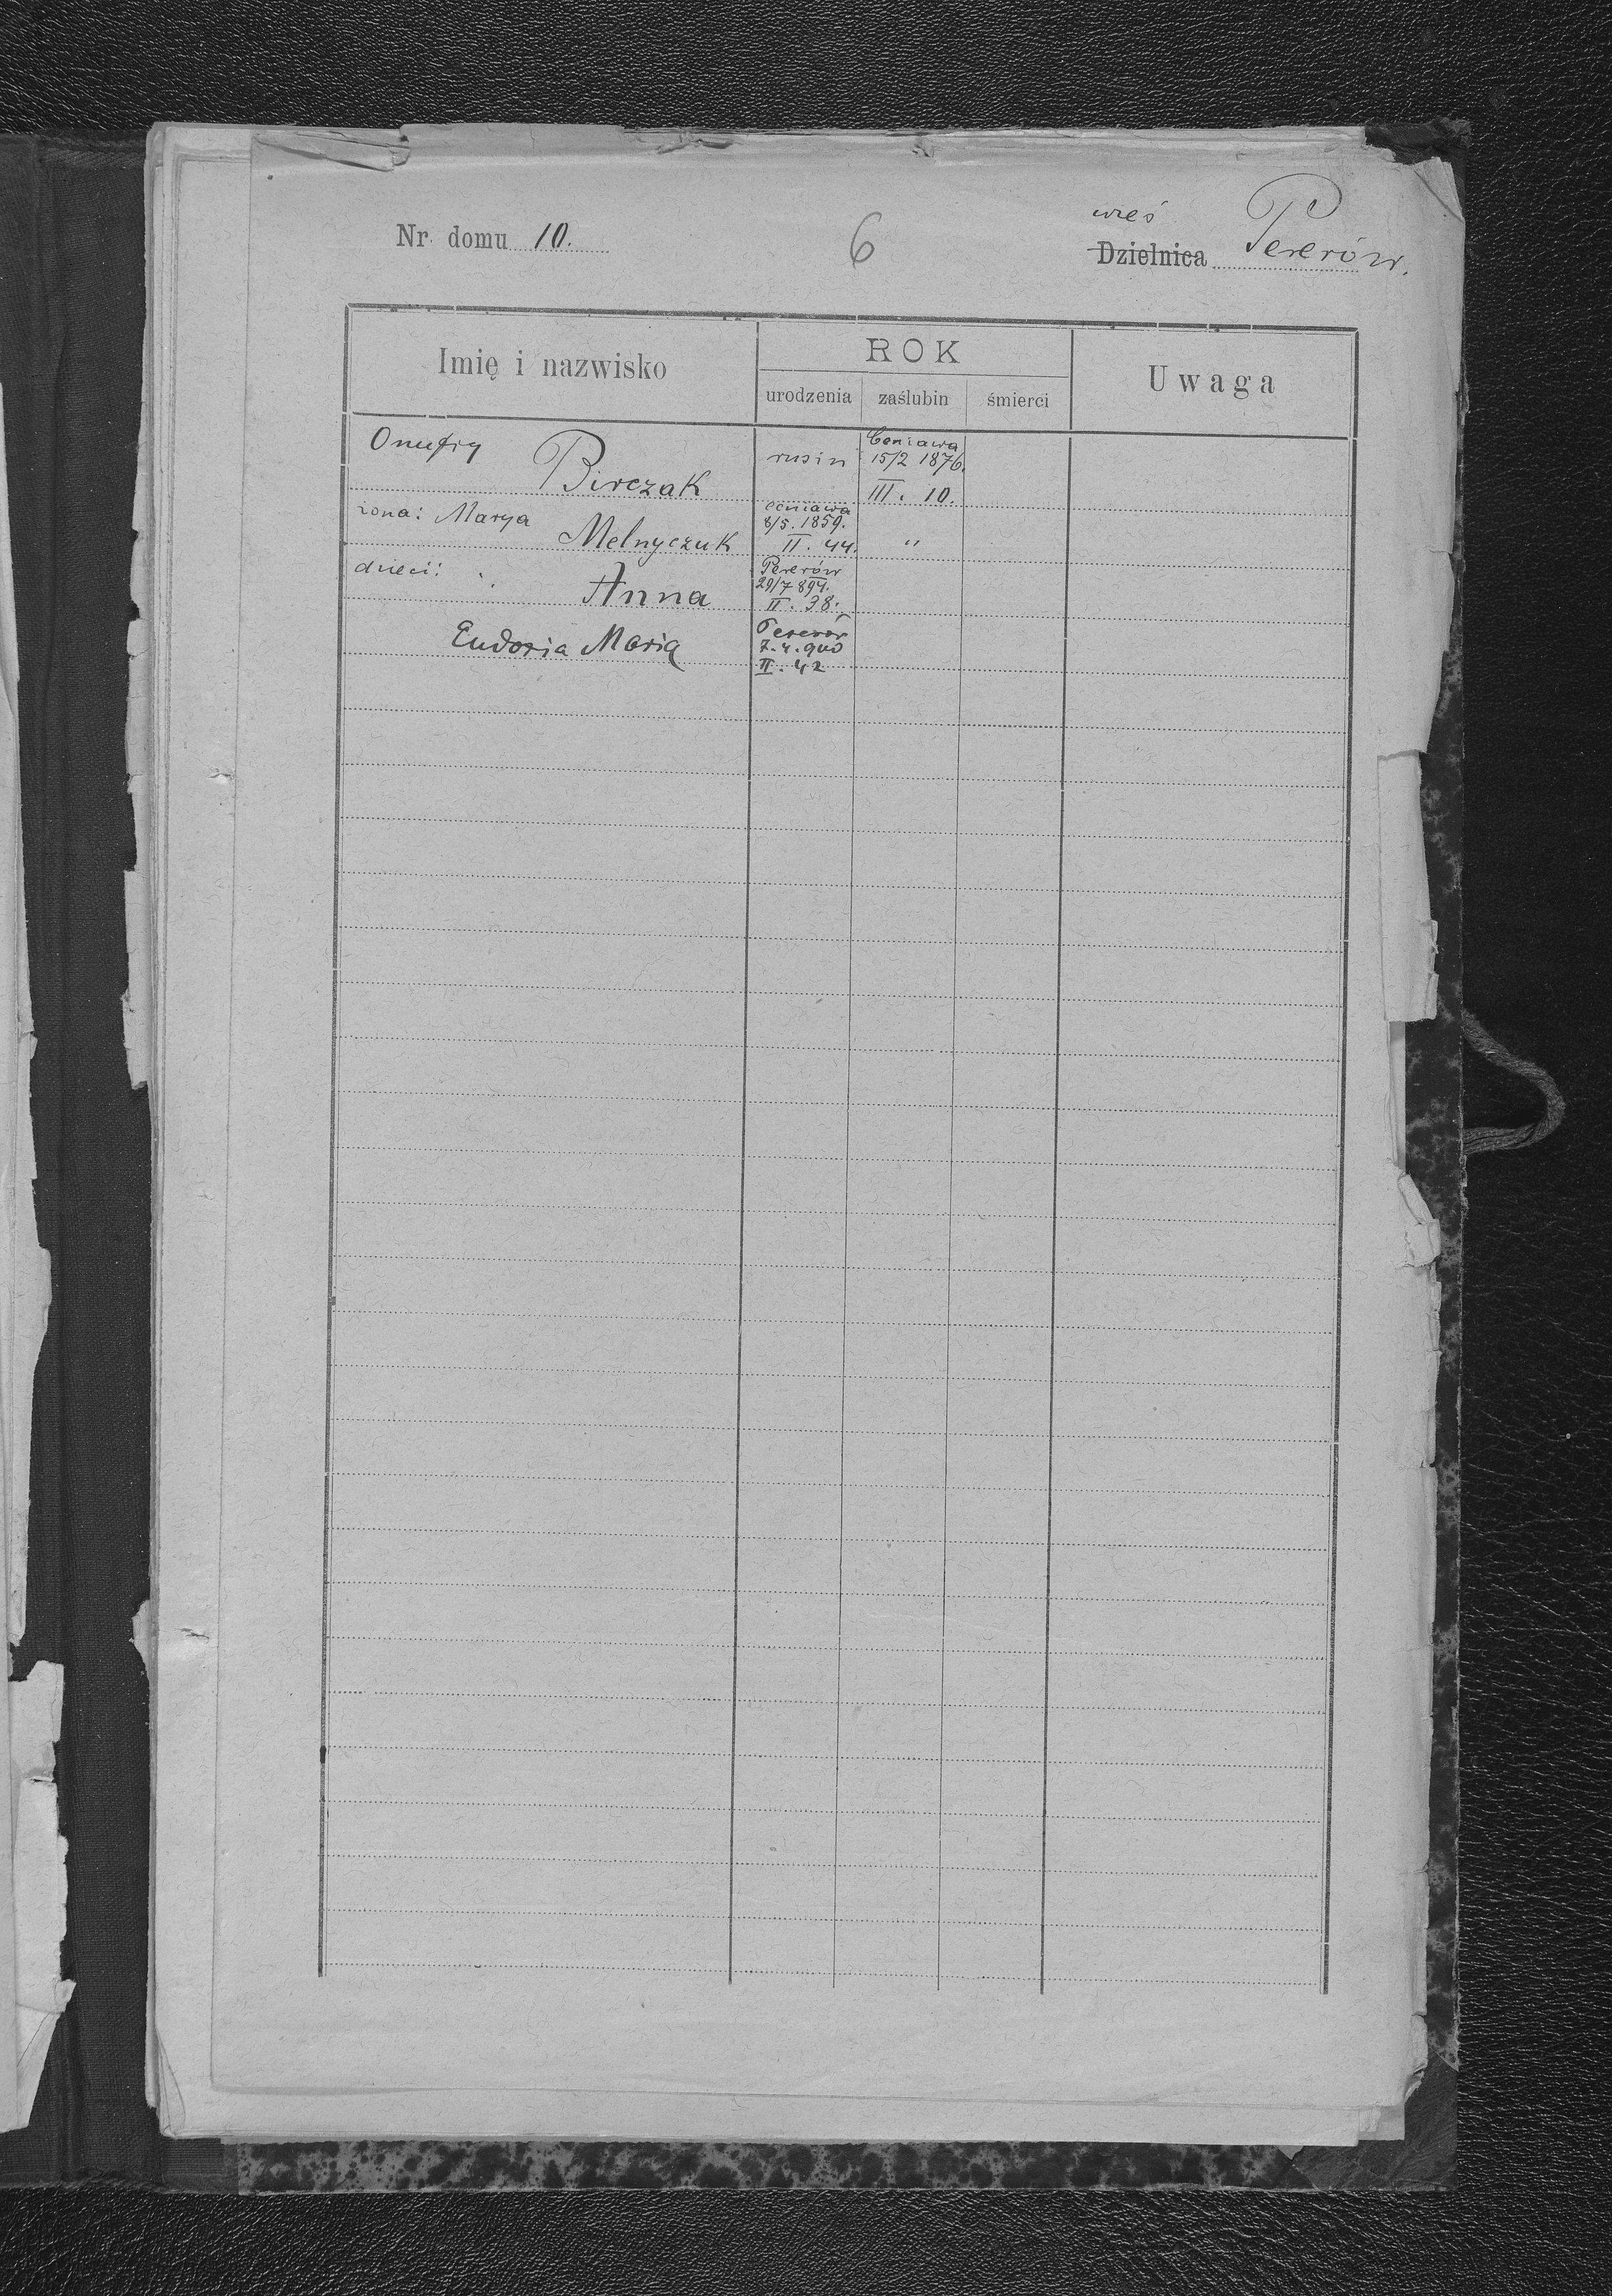 Nr domu 10.
6
wieś
Dzielnica Pererów.
Imię i nazwisko
ROK
urodzenia zaślubin śmierci
Uwaga
Onufry
Birczak
rusin
Ceniawa
15/2 1876.
III. 10.
żona: Marya
Melnyczuk
Ceniawa
8/5. 1859.
II. 44.
"
dzieci:
Anna
Pererów
29/7 894.
II. 38.
Eudoxia Maria
Pererów
7.4.900
II. 42